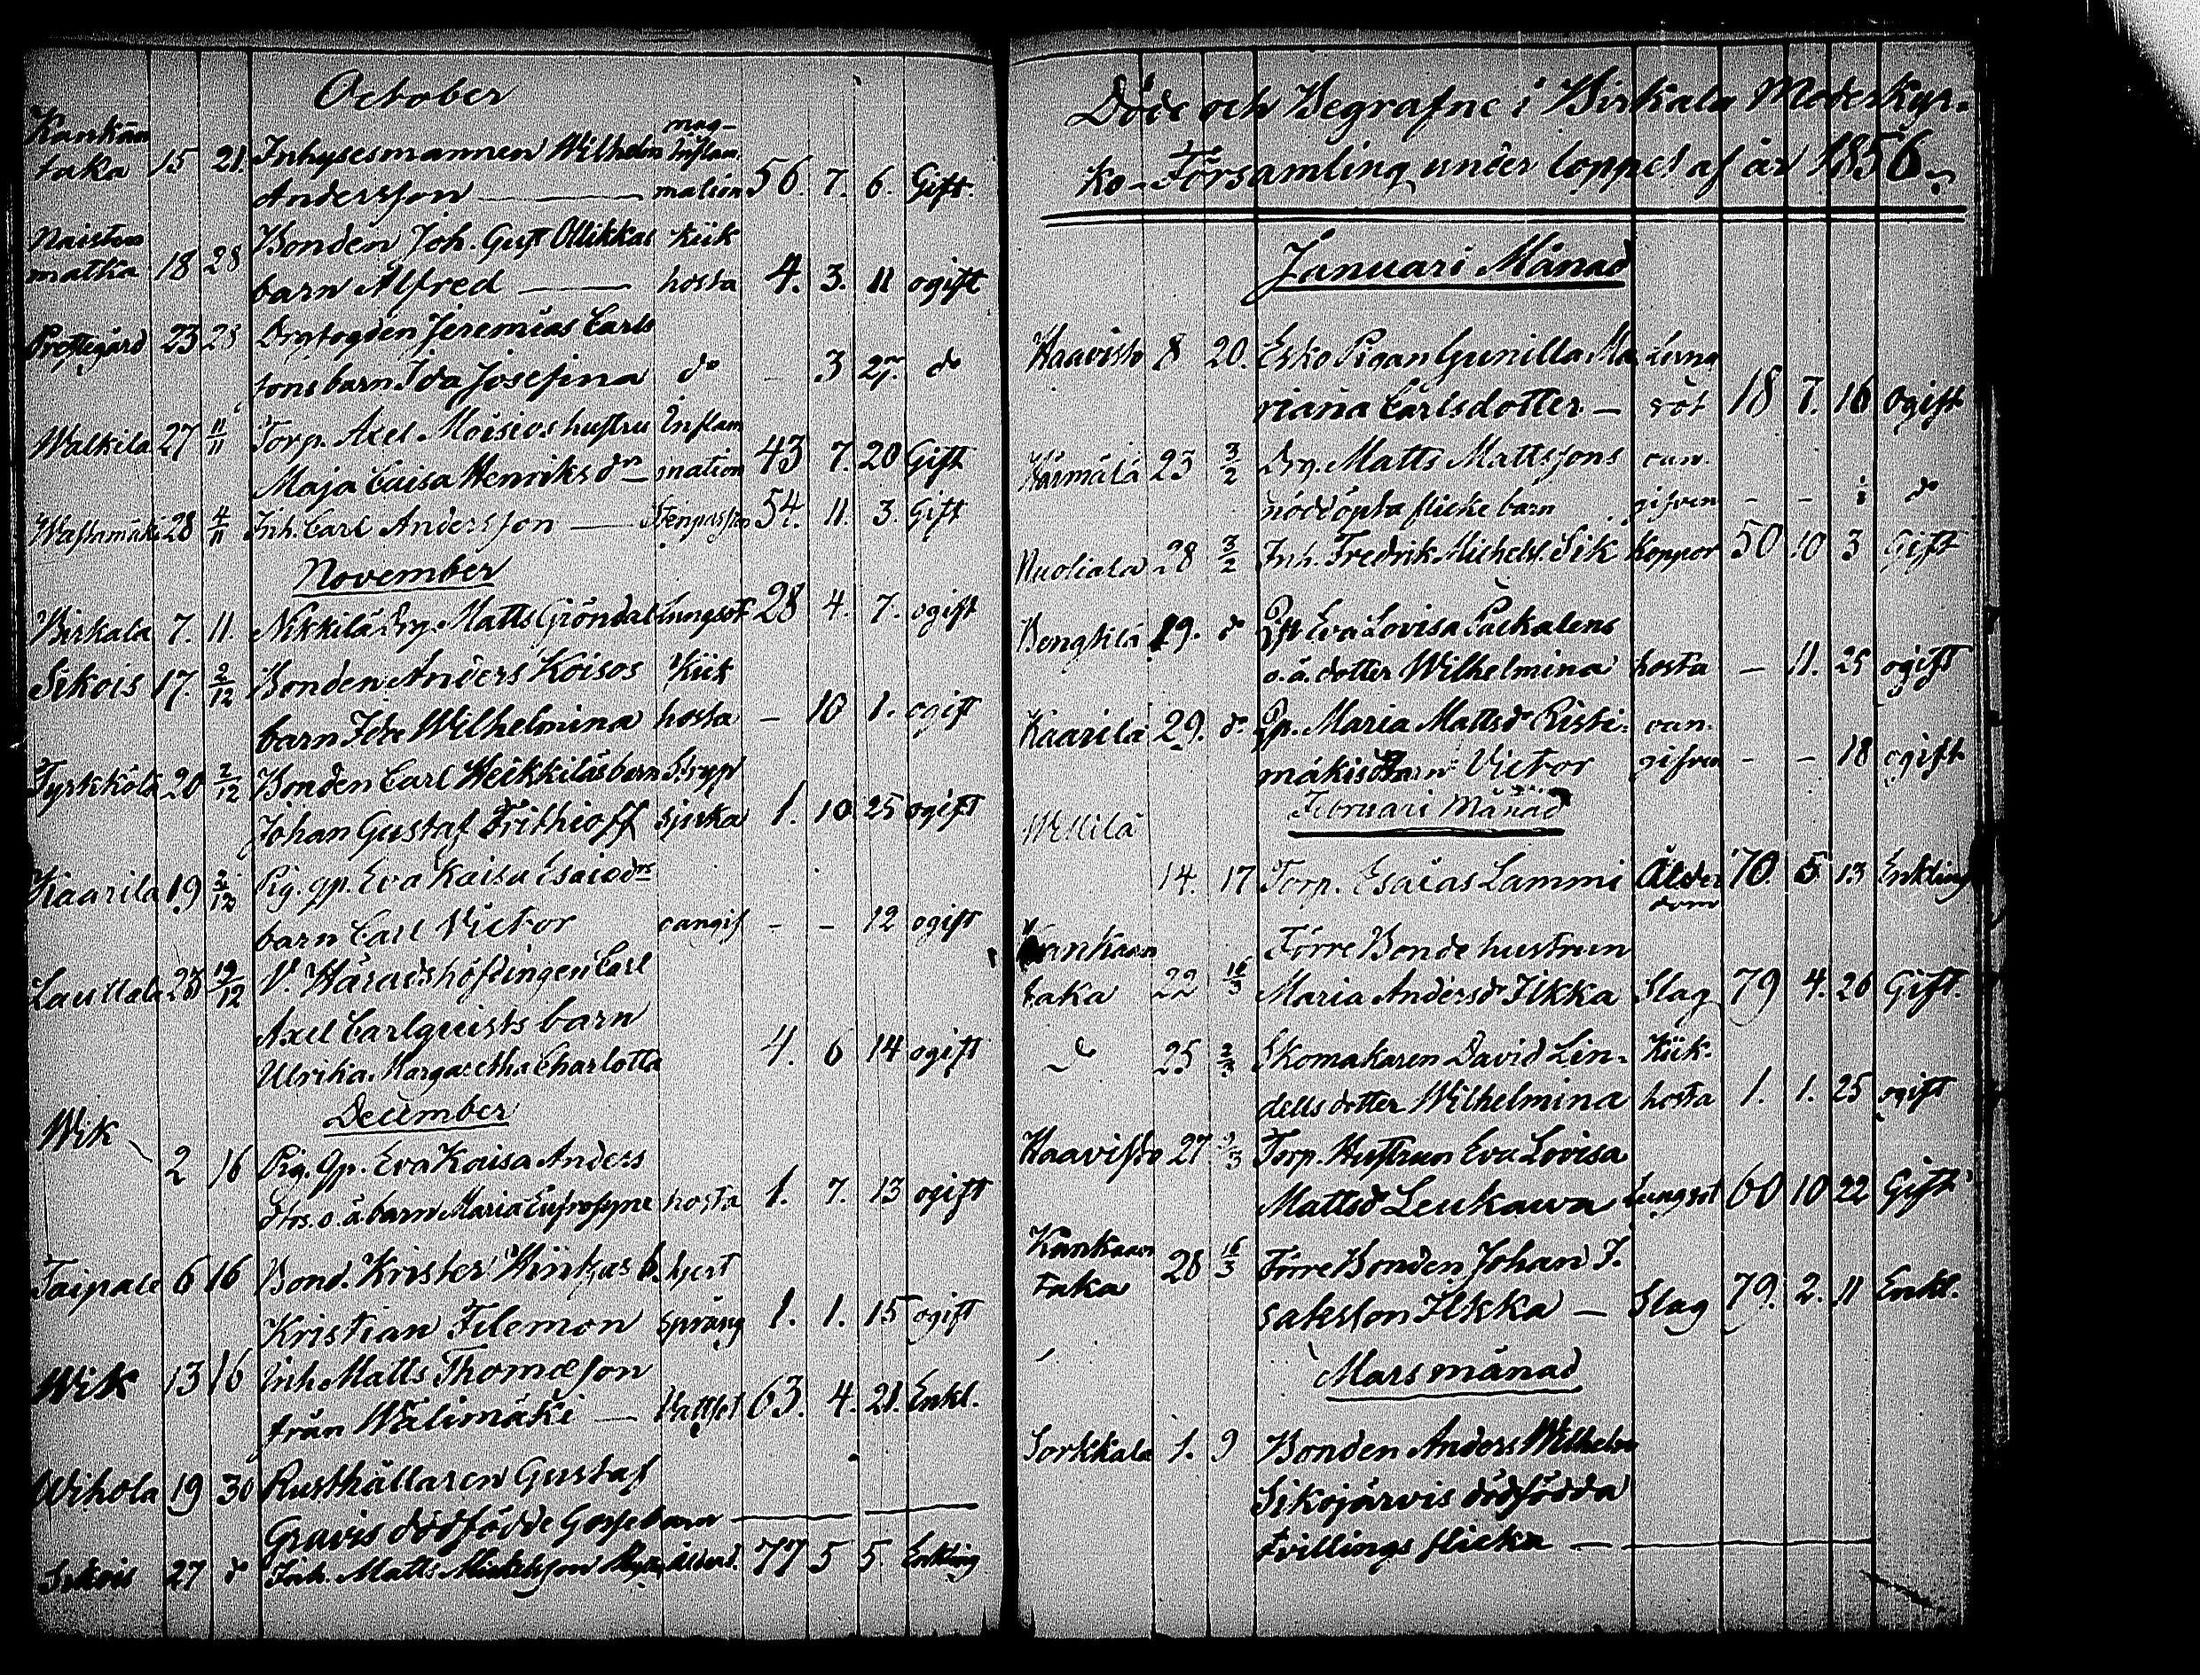 October
Kankaan mag-
taka 15 21. Inhysesmannen Wilhelm inflam
Andersson — mation 56. 7. 6. Gift.
Naisten Bonden Joh. Gust Ollikkas kiik
matka 18 28 barn Alfred — hosta 4. 3. 11 ogift
Prostegård 23 28 Drg fogden Jeremias Carls
sons barn Ida Josefina do - 3 27. do
Walkila 27 11/11 Torp. Axel Moisios hustru Inflam
Maja Caisa Henriks dr mation 43 7. 20 Gift
28 4/11 Inh. Carl Andersson — 54. 11. 3. Gift
November
Birkala 7. 11. Nikkilä Drg. Matts Gröndal Lungsot 28 4. 7. ogift
Sikois 17. 2/12 Bonden Anders Koisos Kiik
barn Ida Wilhelmina hosta - 10 1. ogift
Tyrkkölä 20 2/12 Bonden Carl Heikkiläs barn Stryp
Johan Gustaf Frithioff sjuka 1. 10 25 ogift
Kaarila 19 2/12 Pig. gp. Eva Kaisa Esaiædrs
barn Carl Victor oangif - - 12 ogift
23 19/12 V. Häradshöfdingen Carl
Axel Carlquists barn
Ulrika Margaretha Charlotta 4. 6 14 ogift
December
Wik
2 16 Pig. gp. Eva Kaisa Anders
drs. o. ä. barn Maria Eufrosyne hosta 1. 7. 13 ogift
Taipale 6 16 Bond. Krister b. hjert
Kristian Filemon språng 1. 1. 15 ogift
Wik 13 16 Inh. Matts Thomæson
från Wälimäki — Vattsot 63. 4. 21. Enkl.
Wihola 19 30 Rusthållaren Gustaf
Gravis dödfödde Gossebarn —
Sikois 27 do Inh. Matts Michelsson Ålderd. 77 5 5. Enkling
Döde och Begrafne i Birkala Moderkyr-
ko-Församling under loppet af år 1856.
Januari Månad
Haavisto 8 20. Esko Pigan Gunilla Ma Lung
riana Carlsdotter — sot 18 7. 16 Ogift
Härmälä 23 3/2 Drg. Matts Mattssons oan-
nöddöpta flicke barn gifven - - do
Nuoliala 28 3/2 Inh. Fredrik Michelss. Sik Koppor 50 10 3 Gift
Bengtilä 29. do Eva Lovisa
o.ä. dotter Wilhelmina hosta - 11. 25 ogift
Kaarila 29. do Gp. Maria Mattsdr Risti- oan-
mäkis Barn Victor gifven - - 18 ogift
Februari Månad
14. 17 Torp. Esaias Lammi Ålder 70. 5 13 Enkling
dom
Kankaan Förre Bonde hustrun
taka 22 16/3 Maria Andersdr Ilkka Slag 79 4. 26 Gift.
do 25 2/3 Skomakaren David Lin- Kiik-
dells dotter Wilhelmina hosta 1. 1. 25 ogift
Haavisto 27. 9/3 Torp. Hustrun Eva Lovisa
Mattsdr Leukawa Lungsot 60 10 22 Gift
Kankaan
taka 28 16/3 Förre Bonden Johan I-
saksson Ilkka — Slag 79. 2. 11 Enkl.
Mars månad
Sorkkala 1. 9 Bonden Anders Wilhelm
Sikojärvis dödfödda
tvillings flicka —